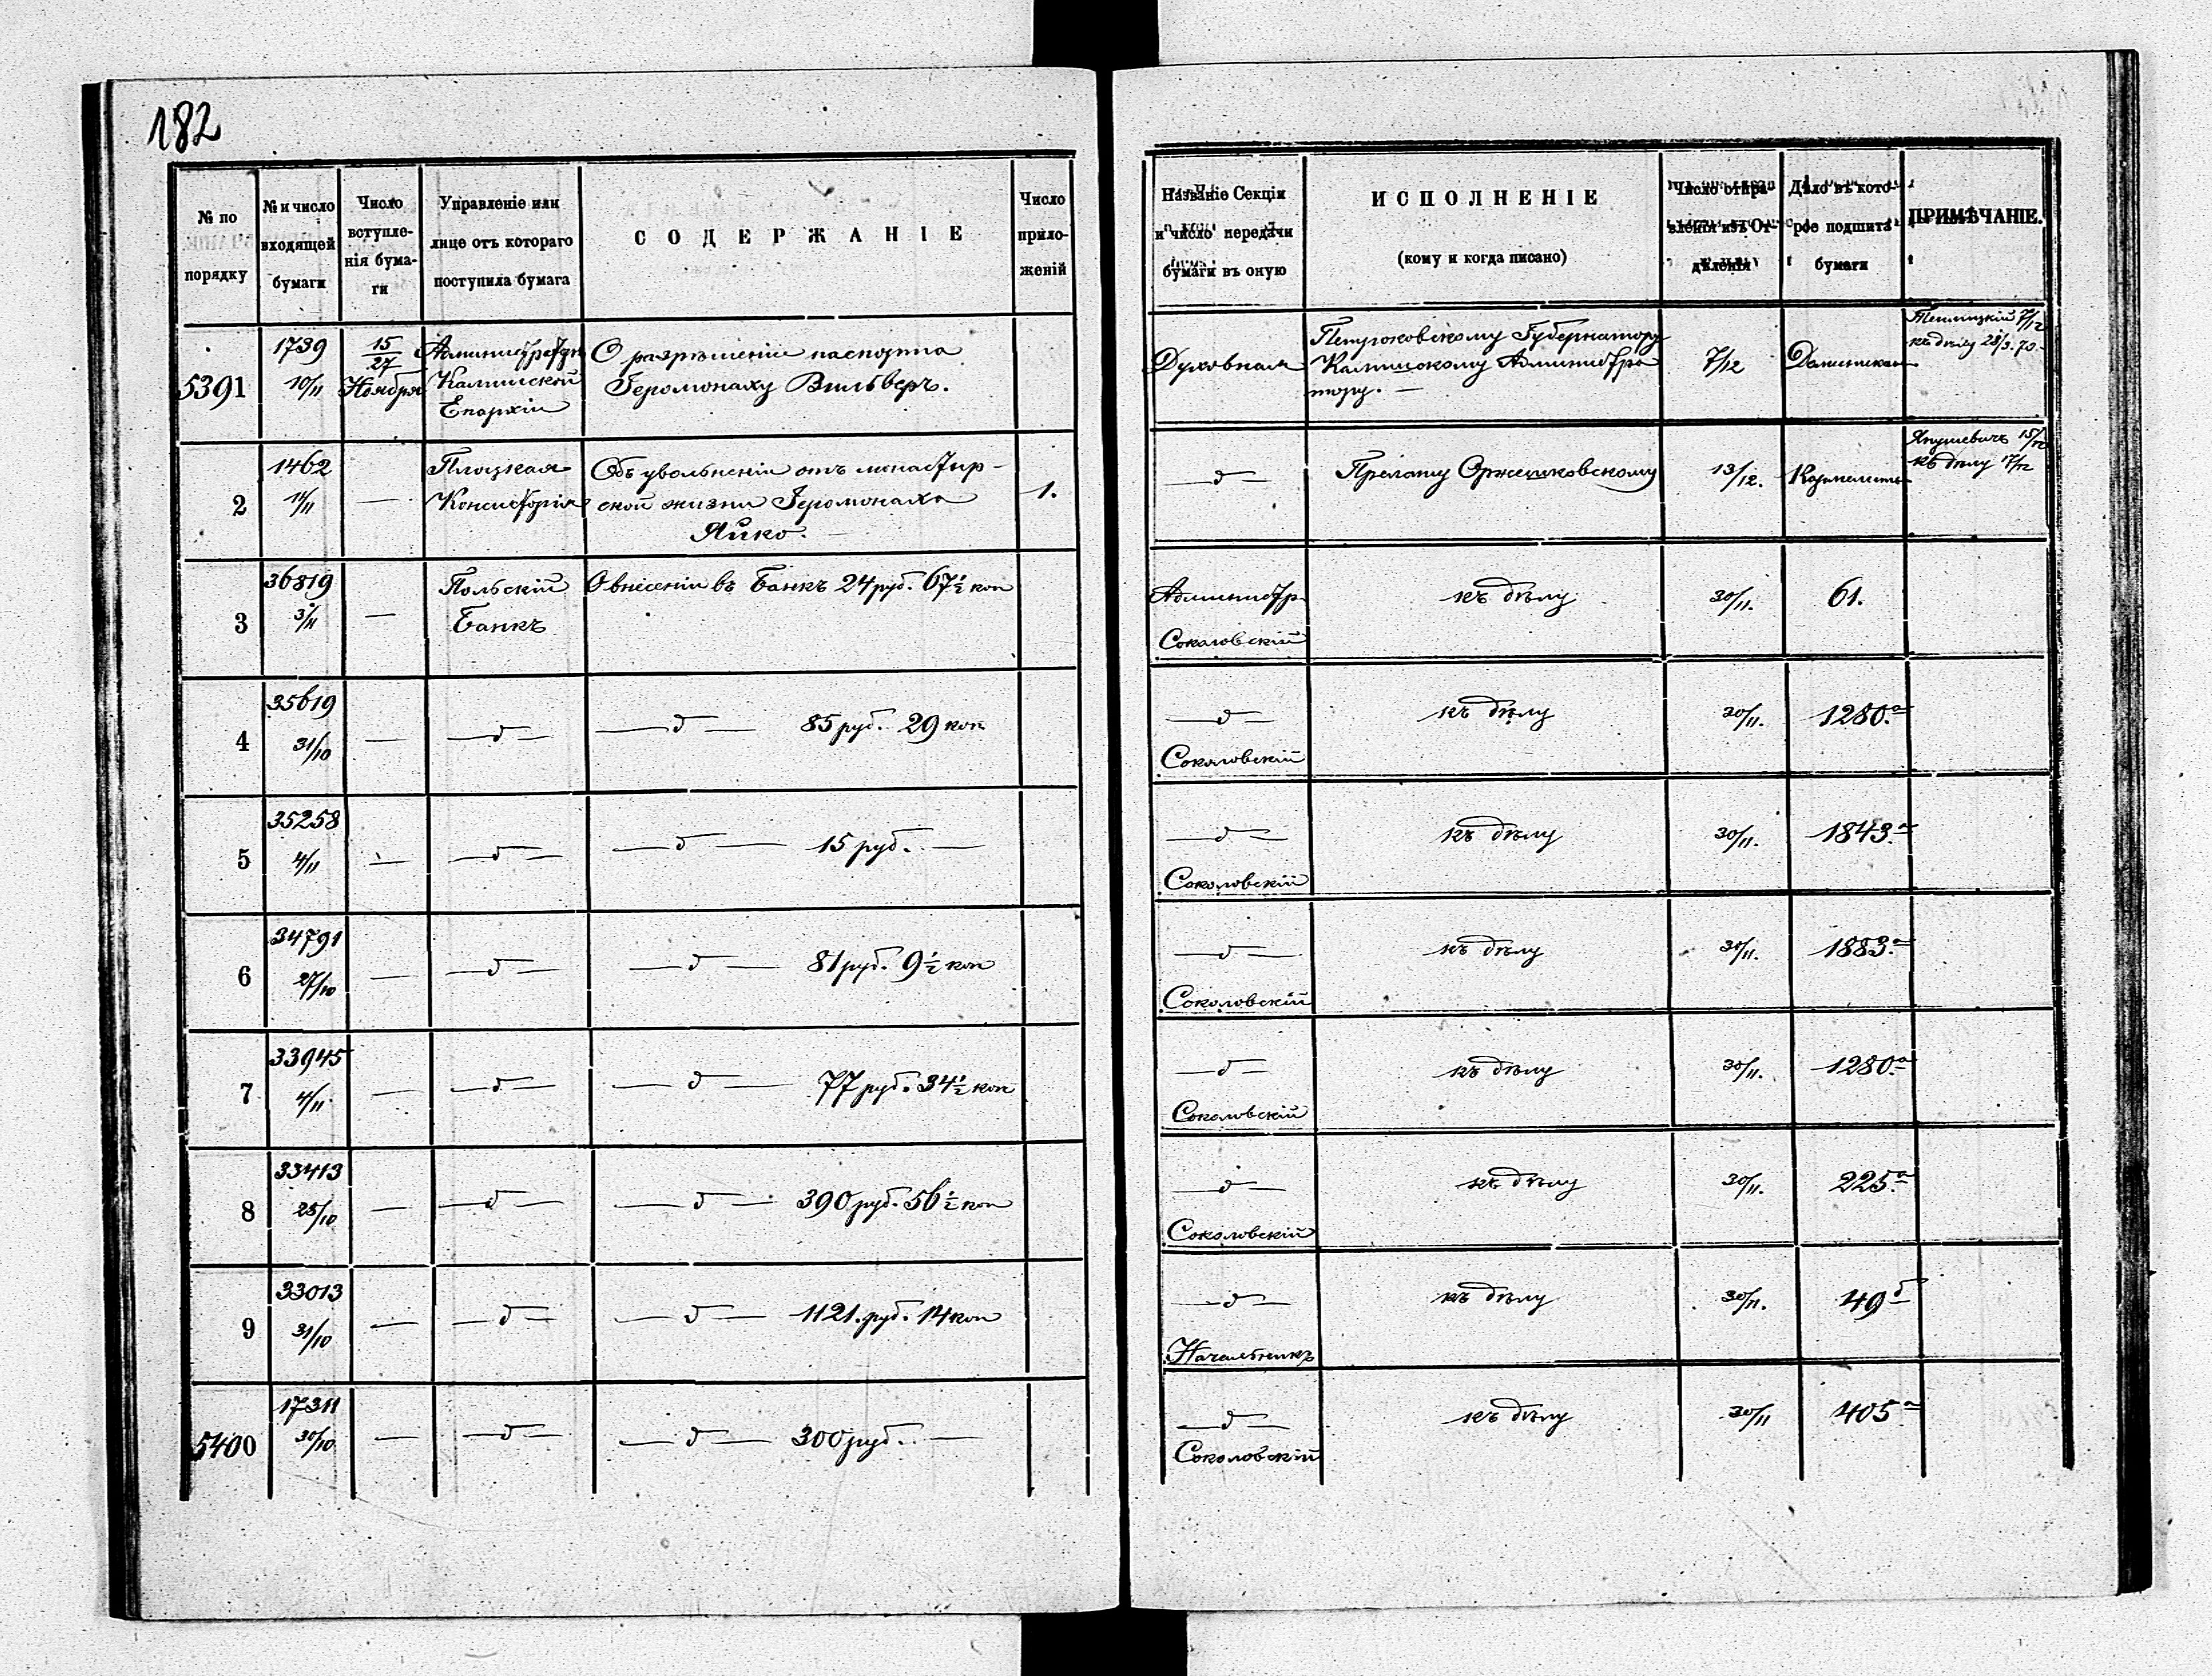 182
№ по порядку
№ и число входящей бумаги
Число вступле-нія бума-ги
Управленіе или лице отъ котораго поступила бумага
СОДЕРЖАНІЕ
Число прило-женій
Названіе Секціи и число передачи бумаги въ оную
ИСПОЛНЕНІЕ
(кому и когда писано)
Число отпра-вленія изъ От-дѣленія
Дѣло въ кото-рое подшита бумага
ПРИМѢЧАНІЕ.
5391
1739
10/11
15/27
Ноября
Администраторъ
Калишской
Епархіи
О разрѣшеніи паспорта
Іеромонаху Вильверъ.
Духовная
Петроковскому Губернатору
Калишскому Администра
тору. —
7/12
7/12
къ дѣлу 28/3. 70.
2
1462
11/11
—
Плоцкая
Консисторія
Объ увольненіи отъ монастыр-
ской жизни Іеромонаха
Яйко.
1.
— д —
Прелату Оржешковскому
13/12.
Кармелиты
Янушевичъ 15/12
къ дѣлу 17/12
3
36819
3/11
—
Польскій
Банкъ
О внесеніи въ Банкъ 24 руб. 67 1/2 коп
Администр
Соколовскій
къ дѣлу
30/11.
61.
4
35619
31/10
—
— д —
— д — 85 руб. 29 коп
— д —
Соколовскій
къ дѣлу
30/11.
1280.а
5
35258
4/11
—
— д —
— д — 15 руб. —
— д —
Соколовскій
къ дѣлу
30/11.
1843.а
6
34791
27/10
—
— д —
— д — 81 руб. 9 1/2 коп
— д —
Соколовскій
къ дѣлу
30/11.
1883.а
7
33945
4/11
—
— д —
— д — 77 руб. 34 1/2 коп
— д —
Соколовскій
къ дѣлу
30/11.
1280.а
8
33413
25/10
—
— д —
— д — 390 руб. 56 1/2 коп
— д —
Соколовскій
къ дѣлу
30/11.
225.а
9
33013
31/10
—
— д —
— д — 1121. руб. 14 коп
— д —
Начальникъ
къ дѣлу
30/11.
49 б
5400
17311
30/10
—
— д —
— д — 300 руб. —
— д —
Соколовскій
къ дѣлу
30/11
405.а